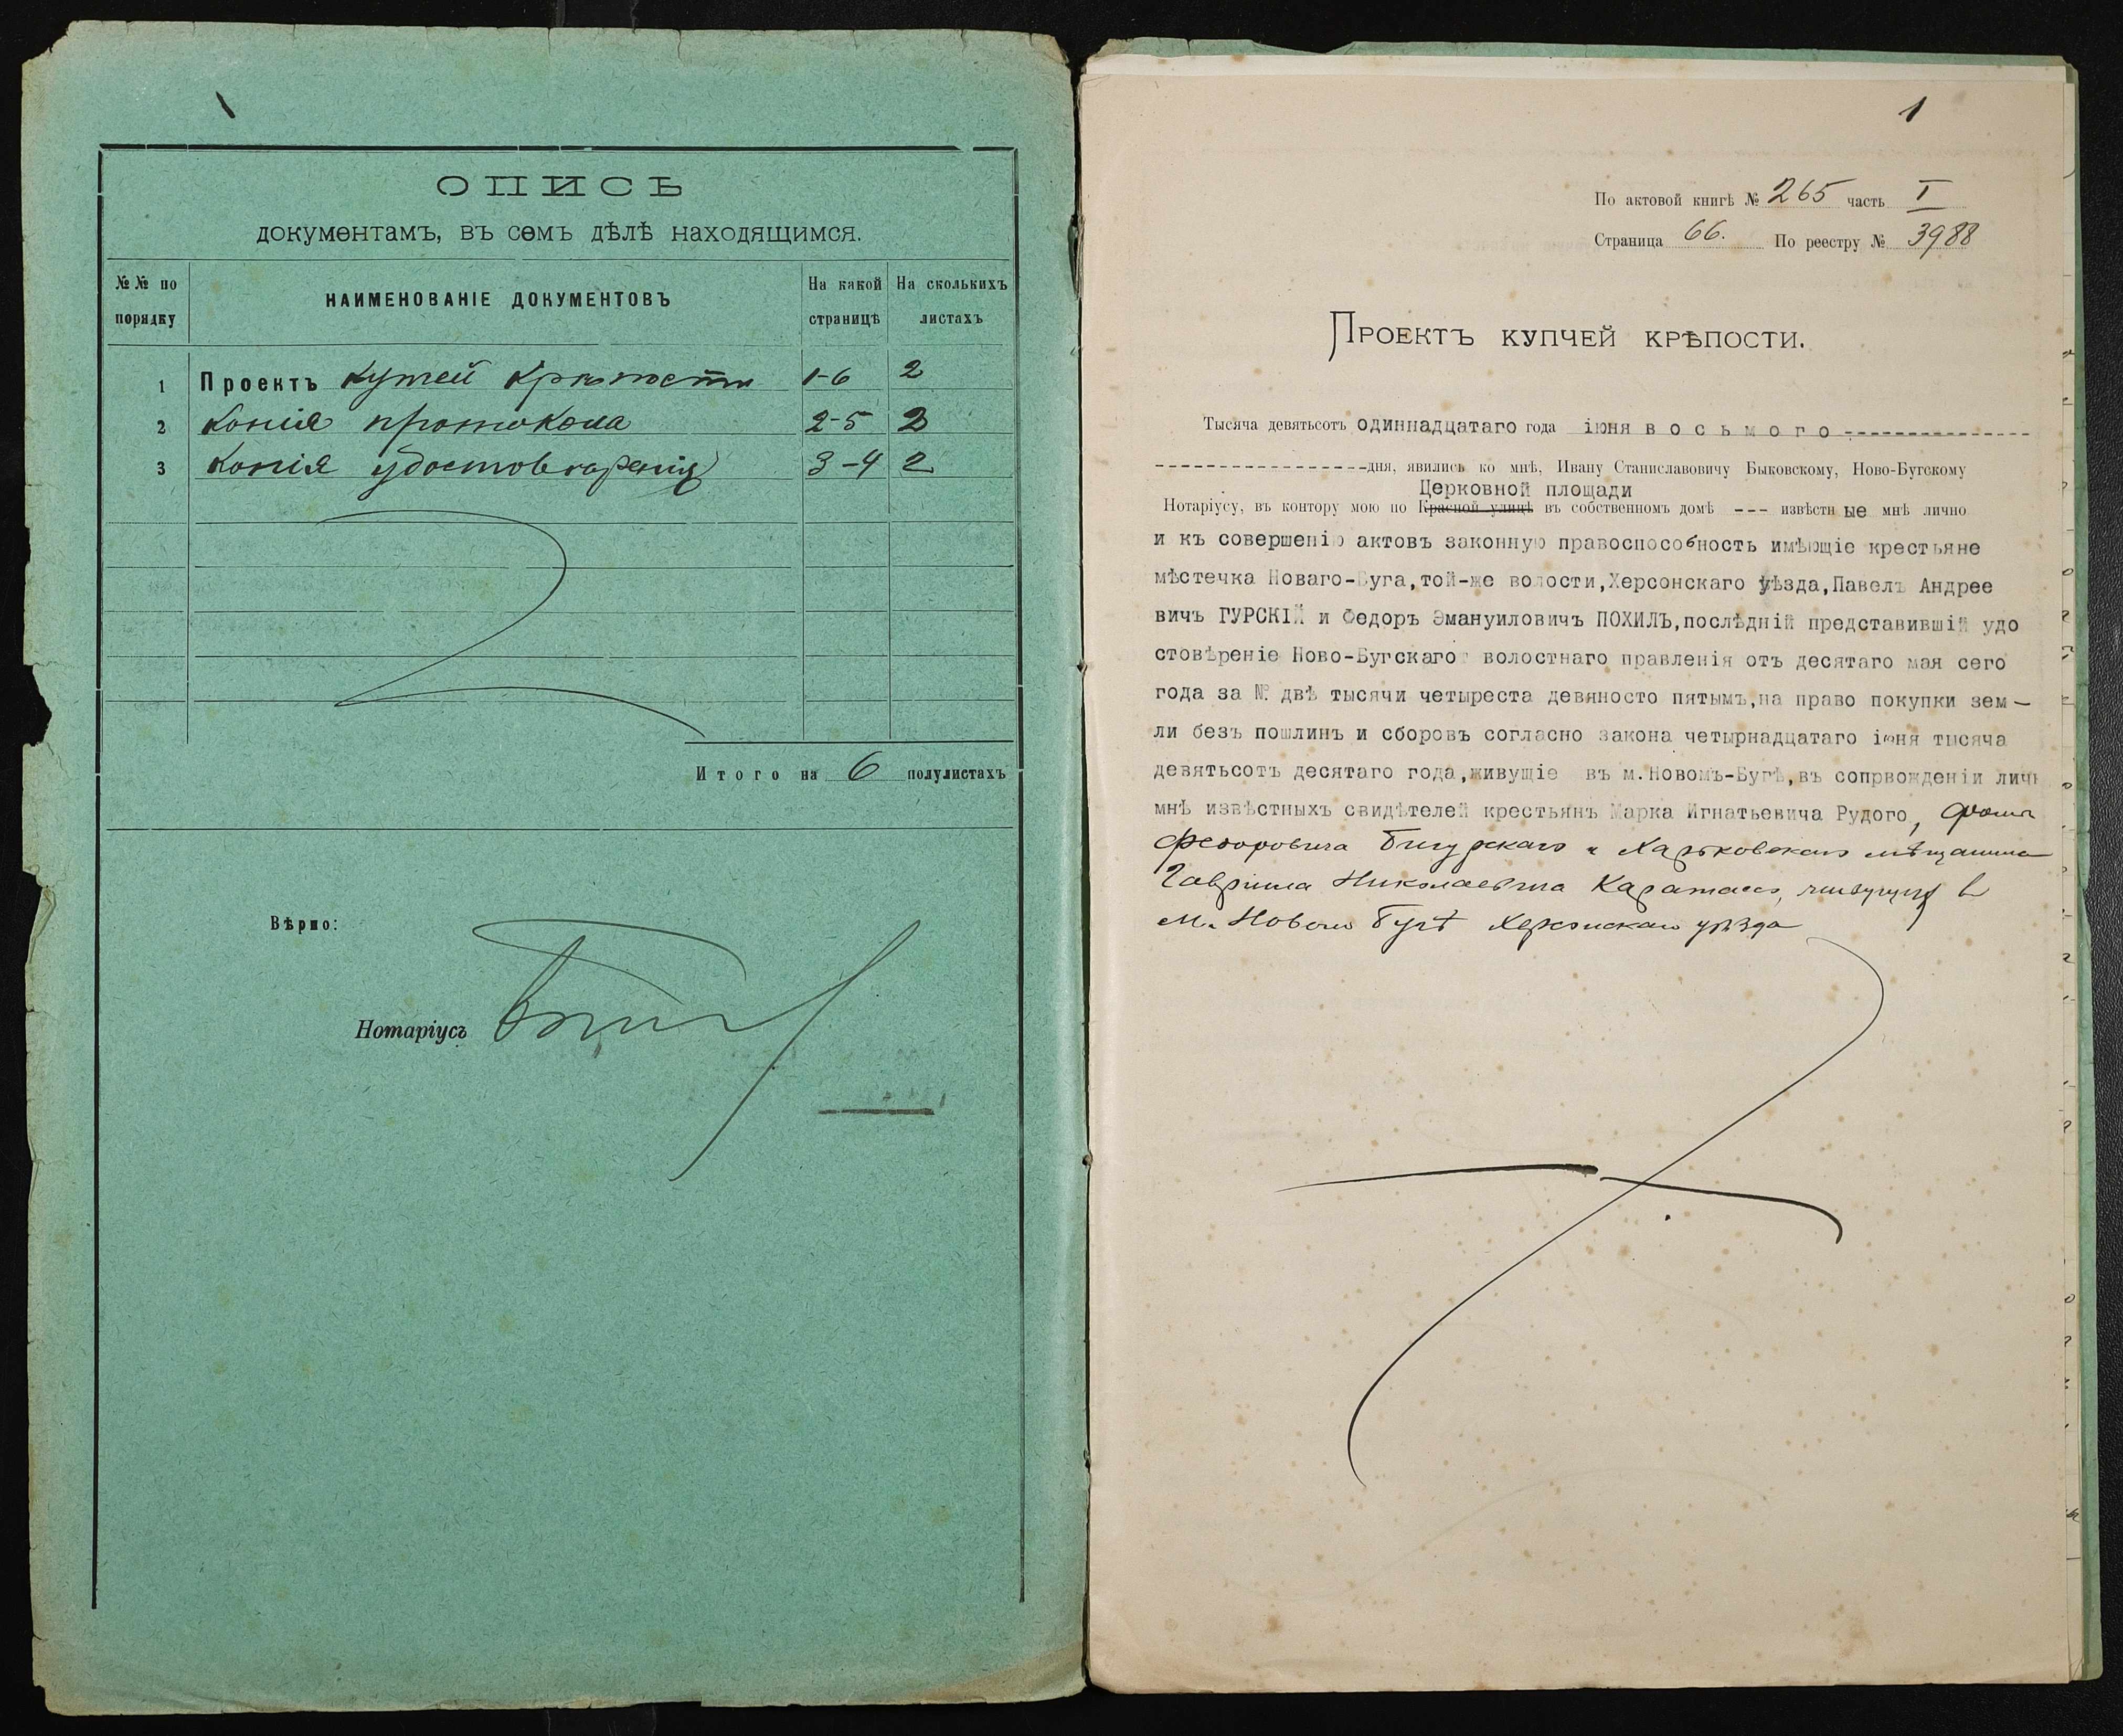 ОПИСЬ
документамъ, въ семъ дѣлѣ находящимся.
№№ по порядку
НАИМЕНОВАНІЕ ДОКУМЕНТОВЪ
На какой страницѣ
На сколькихъ листахъ
1 Проектъ купчей крѣпости 1-6 2
2 Копія протокола 2-5 2
3 Копія удостовѣренія 3-4 2
Итого на 6 полулистахъ
Вѣрно:
Нотаріусъ
1
По актовой книгѣ № 265 часть I
Страница 66. По реестру № 3988
Проектъ купчей крѣпости.
Тысяча девятьсотъ одиннадцатаго года іюня восьмого
дня, явились ко мнѣ, Ивану Станиславовичу Быковскому, Ново-Бугскому
Церковной площади
Нотаріусу, въ контору мою по Красной улицѣ въ собственномъ домѣ --- извѣстные мнѣ лично
и къ совершенію актовъ законную правоспособность имѣющіе крестьяне
мѣстечка Новаго-Буга,той-же волости,Херсонскаго уѣзда,Павелъ Андрее
вичъ ГУРСКІЙ и Федоръ Эмануиловичъ ПОХИЛЪ,послѣдній представившій удо
стовѣреніе Ново-Бугскаго волостнаго правленія отъ десятаго мая сего
года за № двѣ тысячи четыреста девяносто пятымъ,на право покупки зем-
ли безъ пошлинъ и сборовъ согласно закона четырнадцатаго іюня тысяча
девятьсотъ десятаго года,живущіе въ м.Новомъ-Бугѣ,въ сопрвожденіи личн
мнѣ извѣстныхъ свидѣтелей крестьянъ Марка Игнатьевича Рудого, Фомы
Федоровича и Харьковскаго мѣщанина
Гавріила Николаевича живущихъ в
м. Новом Бугѣ Херсонскаго уѣзда